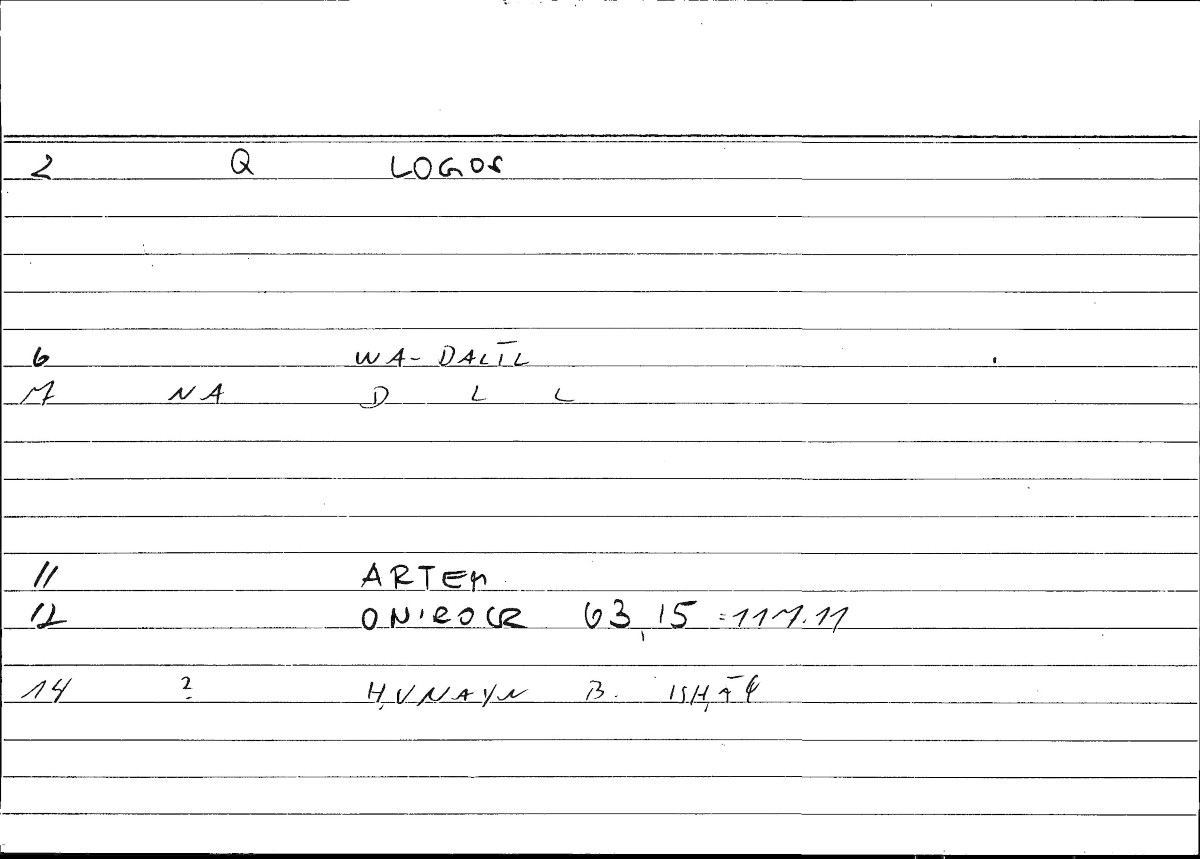 2 Q LOGOS
6 WA- DALĪL
7 NA D L L
11 ARTEM
12 ONIROCR 63,15 = 117.11
14 ? ḤUNAYN B. ISḤĀQ